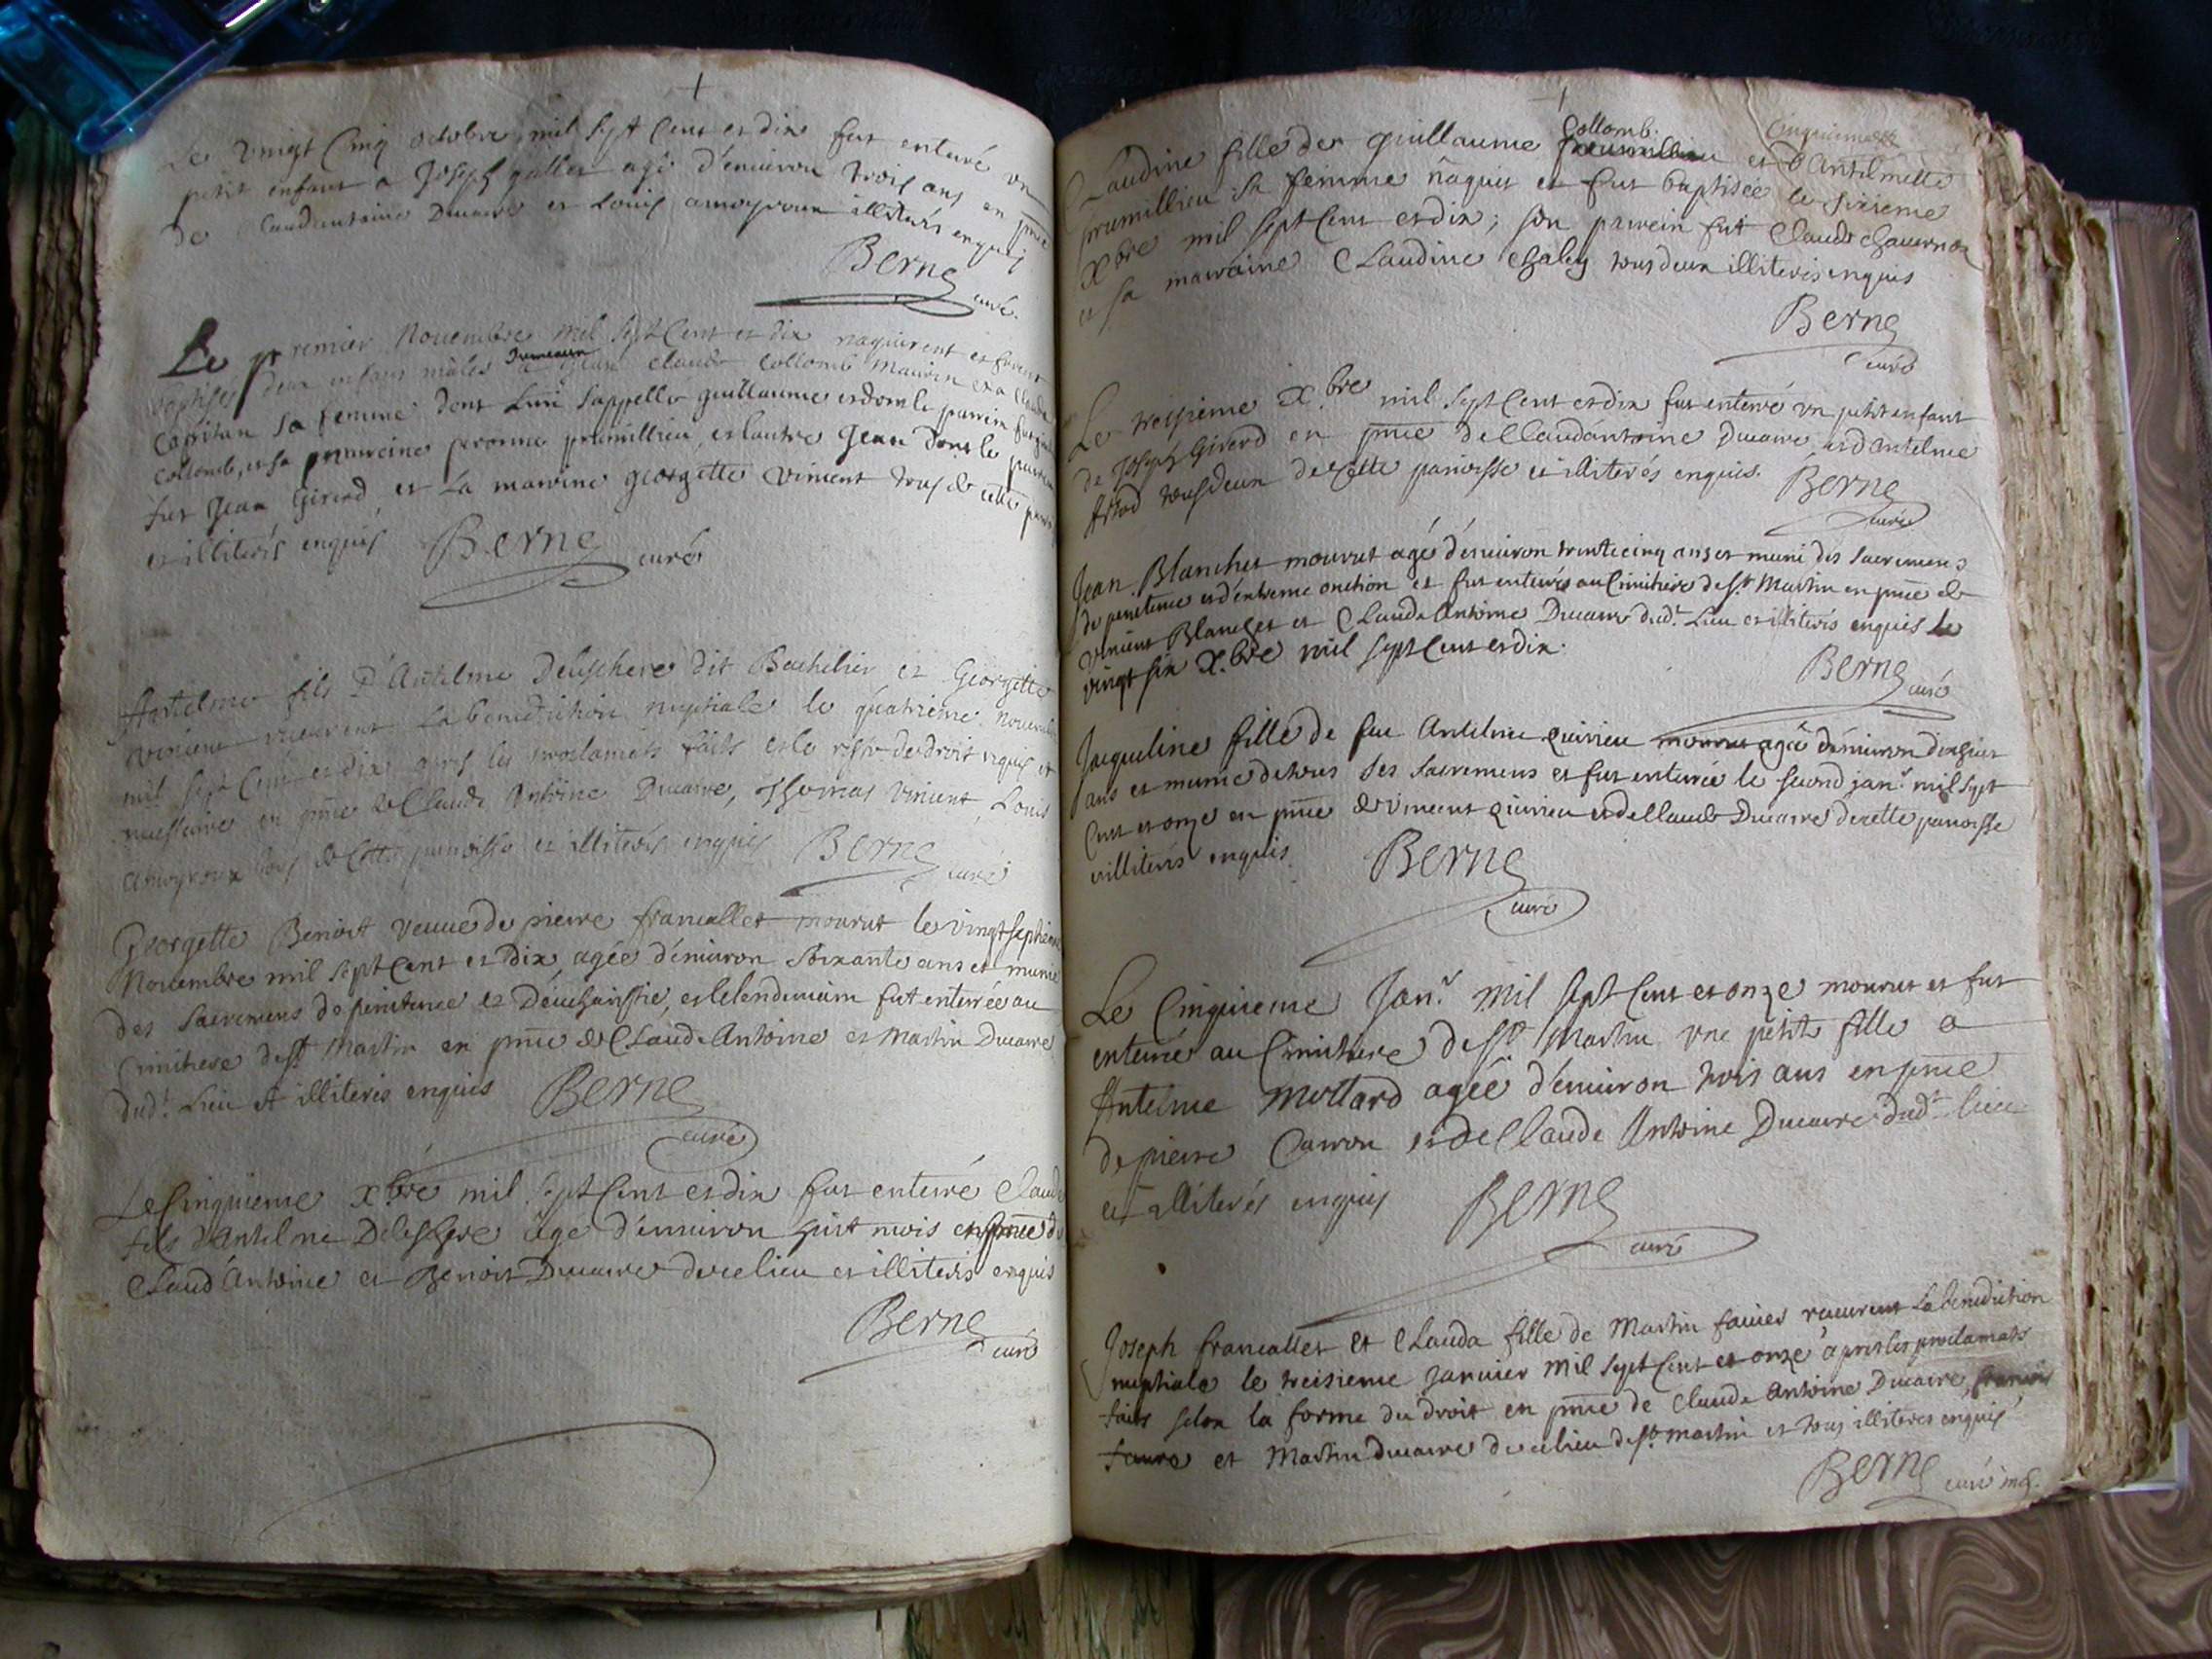 +
Le vingt Cinq octobre mil sept Cent et dix fut enteré un
petit enfant a Joseph gallet agé d'enuiron trois ans en pnce
de Claudantoine Ducarre et Louis amoyroux illiterés enquis
Berne curé.
Le premier Nouembre mil sept Cent et dix naquirent et furent
baptisés deux enfans mâles Jumeaux a Jean Claude Collomb Maurin et a Claude
Capitan sa femme dont Lun sappelle guillaume et dont le parrein fut
Collomb, et sa marreine peronne prumillieu, et lautre Jean dont le parrein
fut Jean Girerd et La marrine georgette vincent tous de cette
et illiterés enquis Berne curé
Antelme fils D'Antelme Delischere dit Bachelier et Georgette
vincent receurent La benediction nuptiale le quatrieme nouembre
mil sept Cent et dix apres les proclamats faits et le reste de droit requis et
necessaire en pnce de Claude Antoine Ducarre, Thomas vincent, Louis
amoyroux tous de Cette parroisse et illiterés enquis Berne curé
Georgette Benoit veuue de pierre francallet mourut le vingtseptieme
Nouembre mil sept Cent et dix agée d'enuiron soixante ans et munie
des sacremens de penitence et D'eucharistie, et lelendemain fut enterrée au
Cimitiere de st Martin en pnce de Claude Antoine et Martin Ducarre
dudt Lieu et illiterés enquis Berne
curé
Le Cinquieme xbre mil sept Cent et dix fut enterré Claude
fils d'Antelme Delischere âgé d'enuiron huit mois en pnce de
Claud'Antoine et Benoit Ducarre dece lieu et illiterés enquis
Berne
curé
+
Collomb. Cinquiemexbre
Claudine fille de guillaume prumillieu et d'Antelmette
prumillieu sa femme nâquit et fut baptisée le sixieme
xbre mil sept Cent et dix; son parrein fut Claude chauernoz
et sa marraine Claudine chaley tous deux illiterés enquis
Berne
curé
Le treisieme X.bre mil sept Cent et dix fut enterré vn petit enfant
de Joseph Girerd en pnce de Claudantoine Ducarre et d'antelme
tous deux de cette parroisse et illiterés enquis. Berne
curé
Jean Blanchet mourut agé d'enuiron trentecinq ans et muni des sacremens
de penitence et d'extreme onction et fut enterrés au Cimitiere de st. Martin en pnce de
vincent Blanchet et Claude Antoine Ducarre dudt. Lieu et illiterés enquis le
vingt six X.bre mil sept Cent et dix.
Berne curé
Jacqueline fille de feu Antelme quirieu mourut agée d'enuiron dixhuit
ans et munie de tous ses sacremens et fut enterrée le second janr. mil sept
Cent et onze en pnce de vincent quirieu et de Claude Ducarre de cette parroisse
illiterés enquis. Berne
curé
Le Cinquieme Janr. mil sept Cent et onze mourut et fut
enterrée au Cimitiere de st. Martin une petite fille a
Antelme Mottard agée d'enuiron trois ans en pnce
de pierre Carron et de Claude Antoine Ducarre dudt. lieu
et illiterés enquis Berne
curé
Joseph francallet et Clauda fille de Martin fauier receurent La benediction
nuptiale le treisieme Januier mil sept Cent et onze apres les proclamats
faits selon la forme du droit en pnce de Claude Antoine Ducarre, francois
faure et Martin Ducarre de ce lieu de st. Martin et tous illiteres enquis
Berne curé